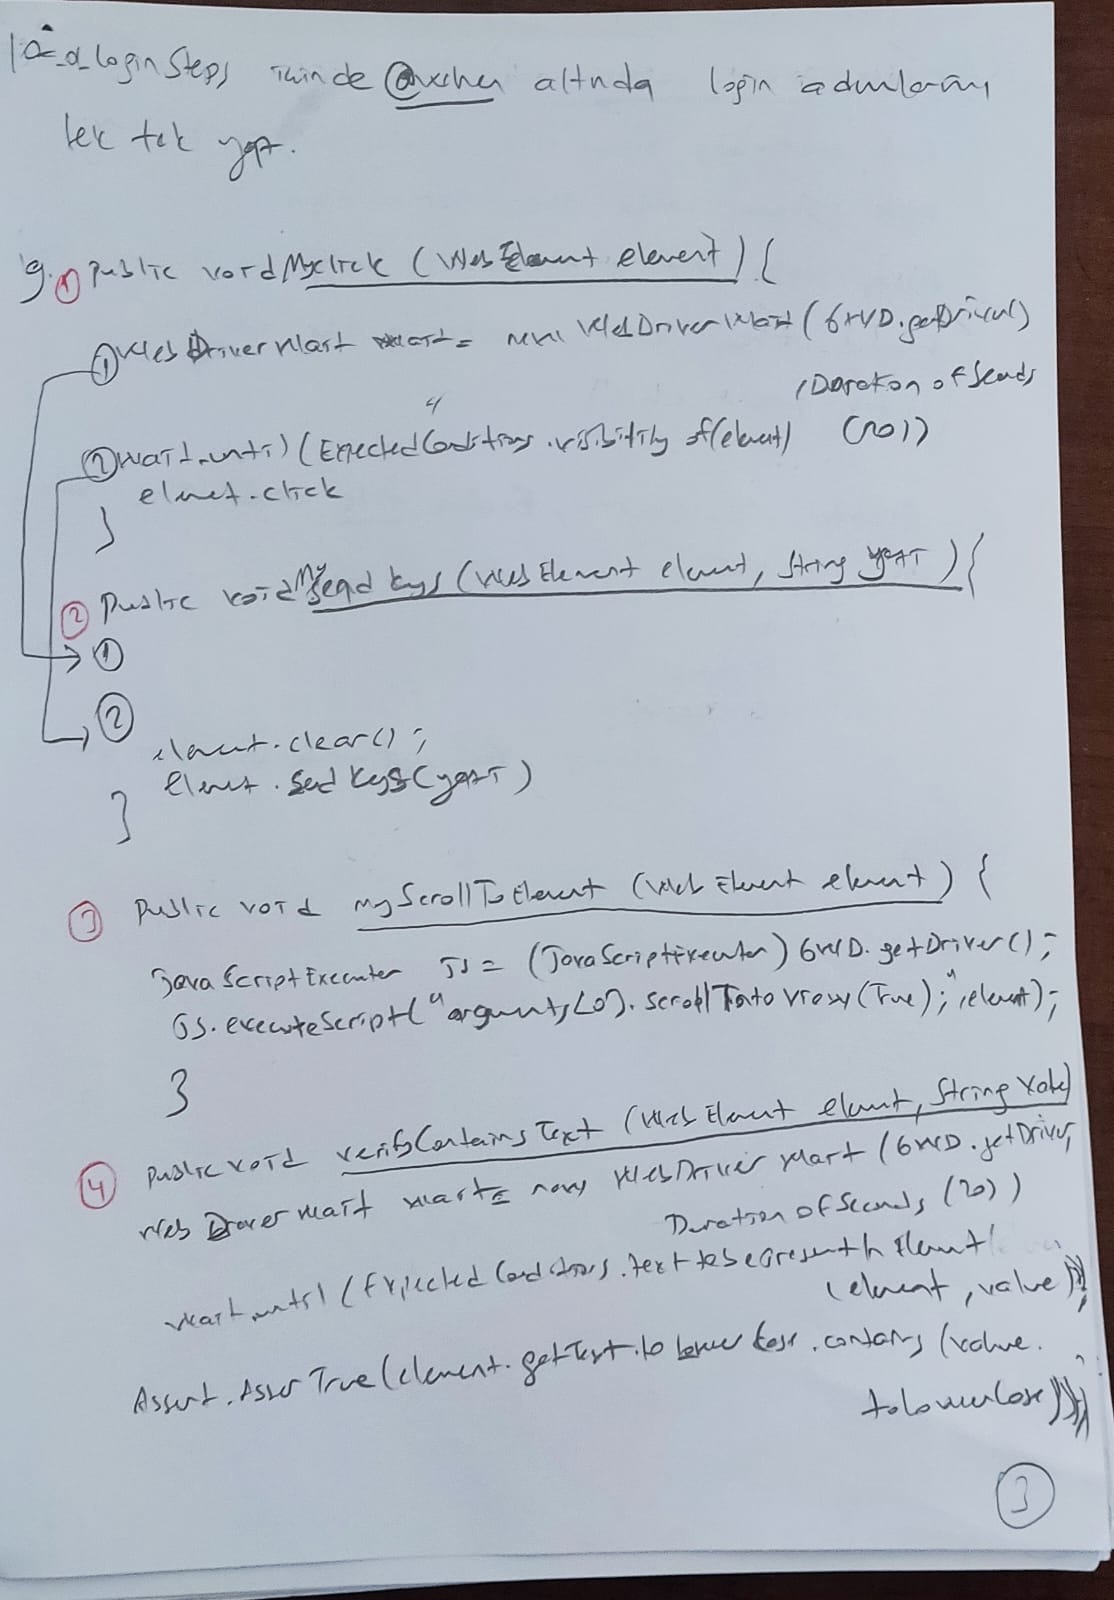 _a_loginSteps içinde @when altında login adımlarını
tek tek yap.
9. 1 public void Myclick (WebElement element) {
1 WebDriverWait wait = new WebDriverWait (GWD.getDriver()
, Duration of Seconds
2 wait.until (ExpectedConditions.visibility of (element) (20))
element.click
}
2 Public void MySendkeys (WebElement element, String yazı) {
1
2
element.clear();
Element.Sendkeys(yazı)
}
3 public void myScrollToElement (Web Element element) {
JavaScriptExecuter JS = (JavaScriptExecuter) GWD.getDriver();
JS.executeScript("arguments[0].scrollIntoView(True);", element);
}
4 Public void verifyContainsText (Web Element element, String Value)
Web Driver wait wait = new WebDriver wait (GWD.getDriver,
Duration of Seconds (20))
wait.until (Expected Conditions.text to be present In Element
(element, value));
Assert.AsserTrue (element.getText.to lower case.contains (value.
toLowerCase))));
3